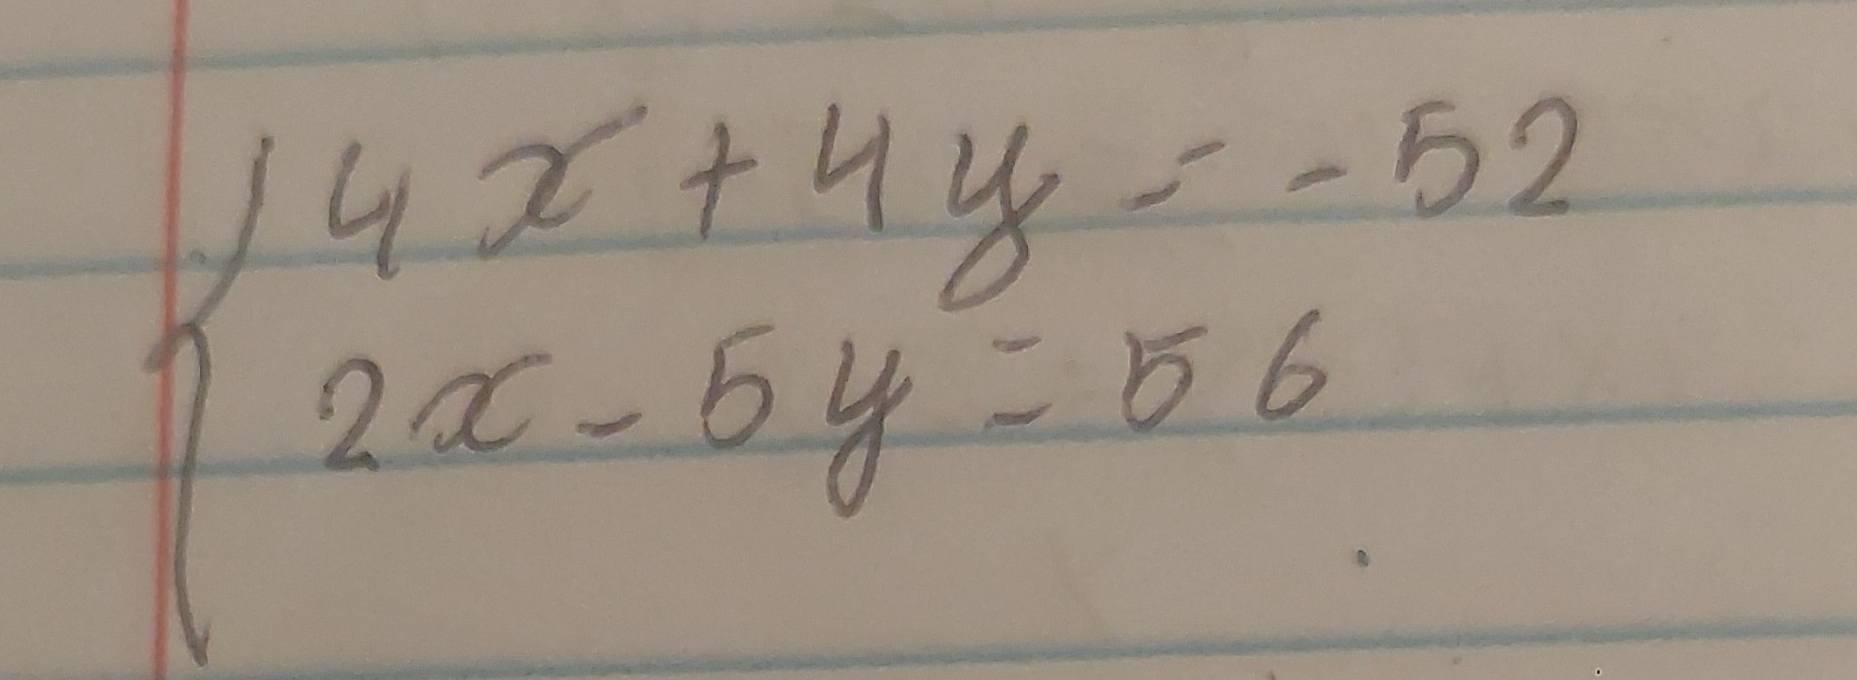 4x + 4y = -52
2x - 5y = 56